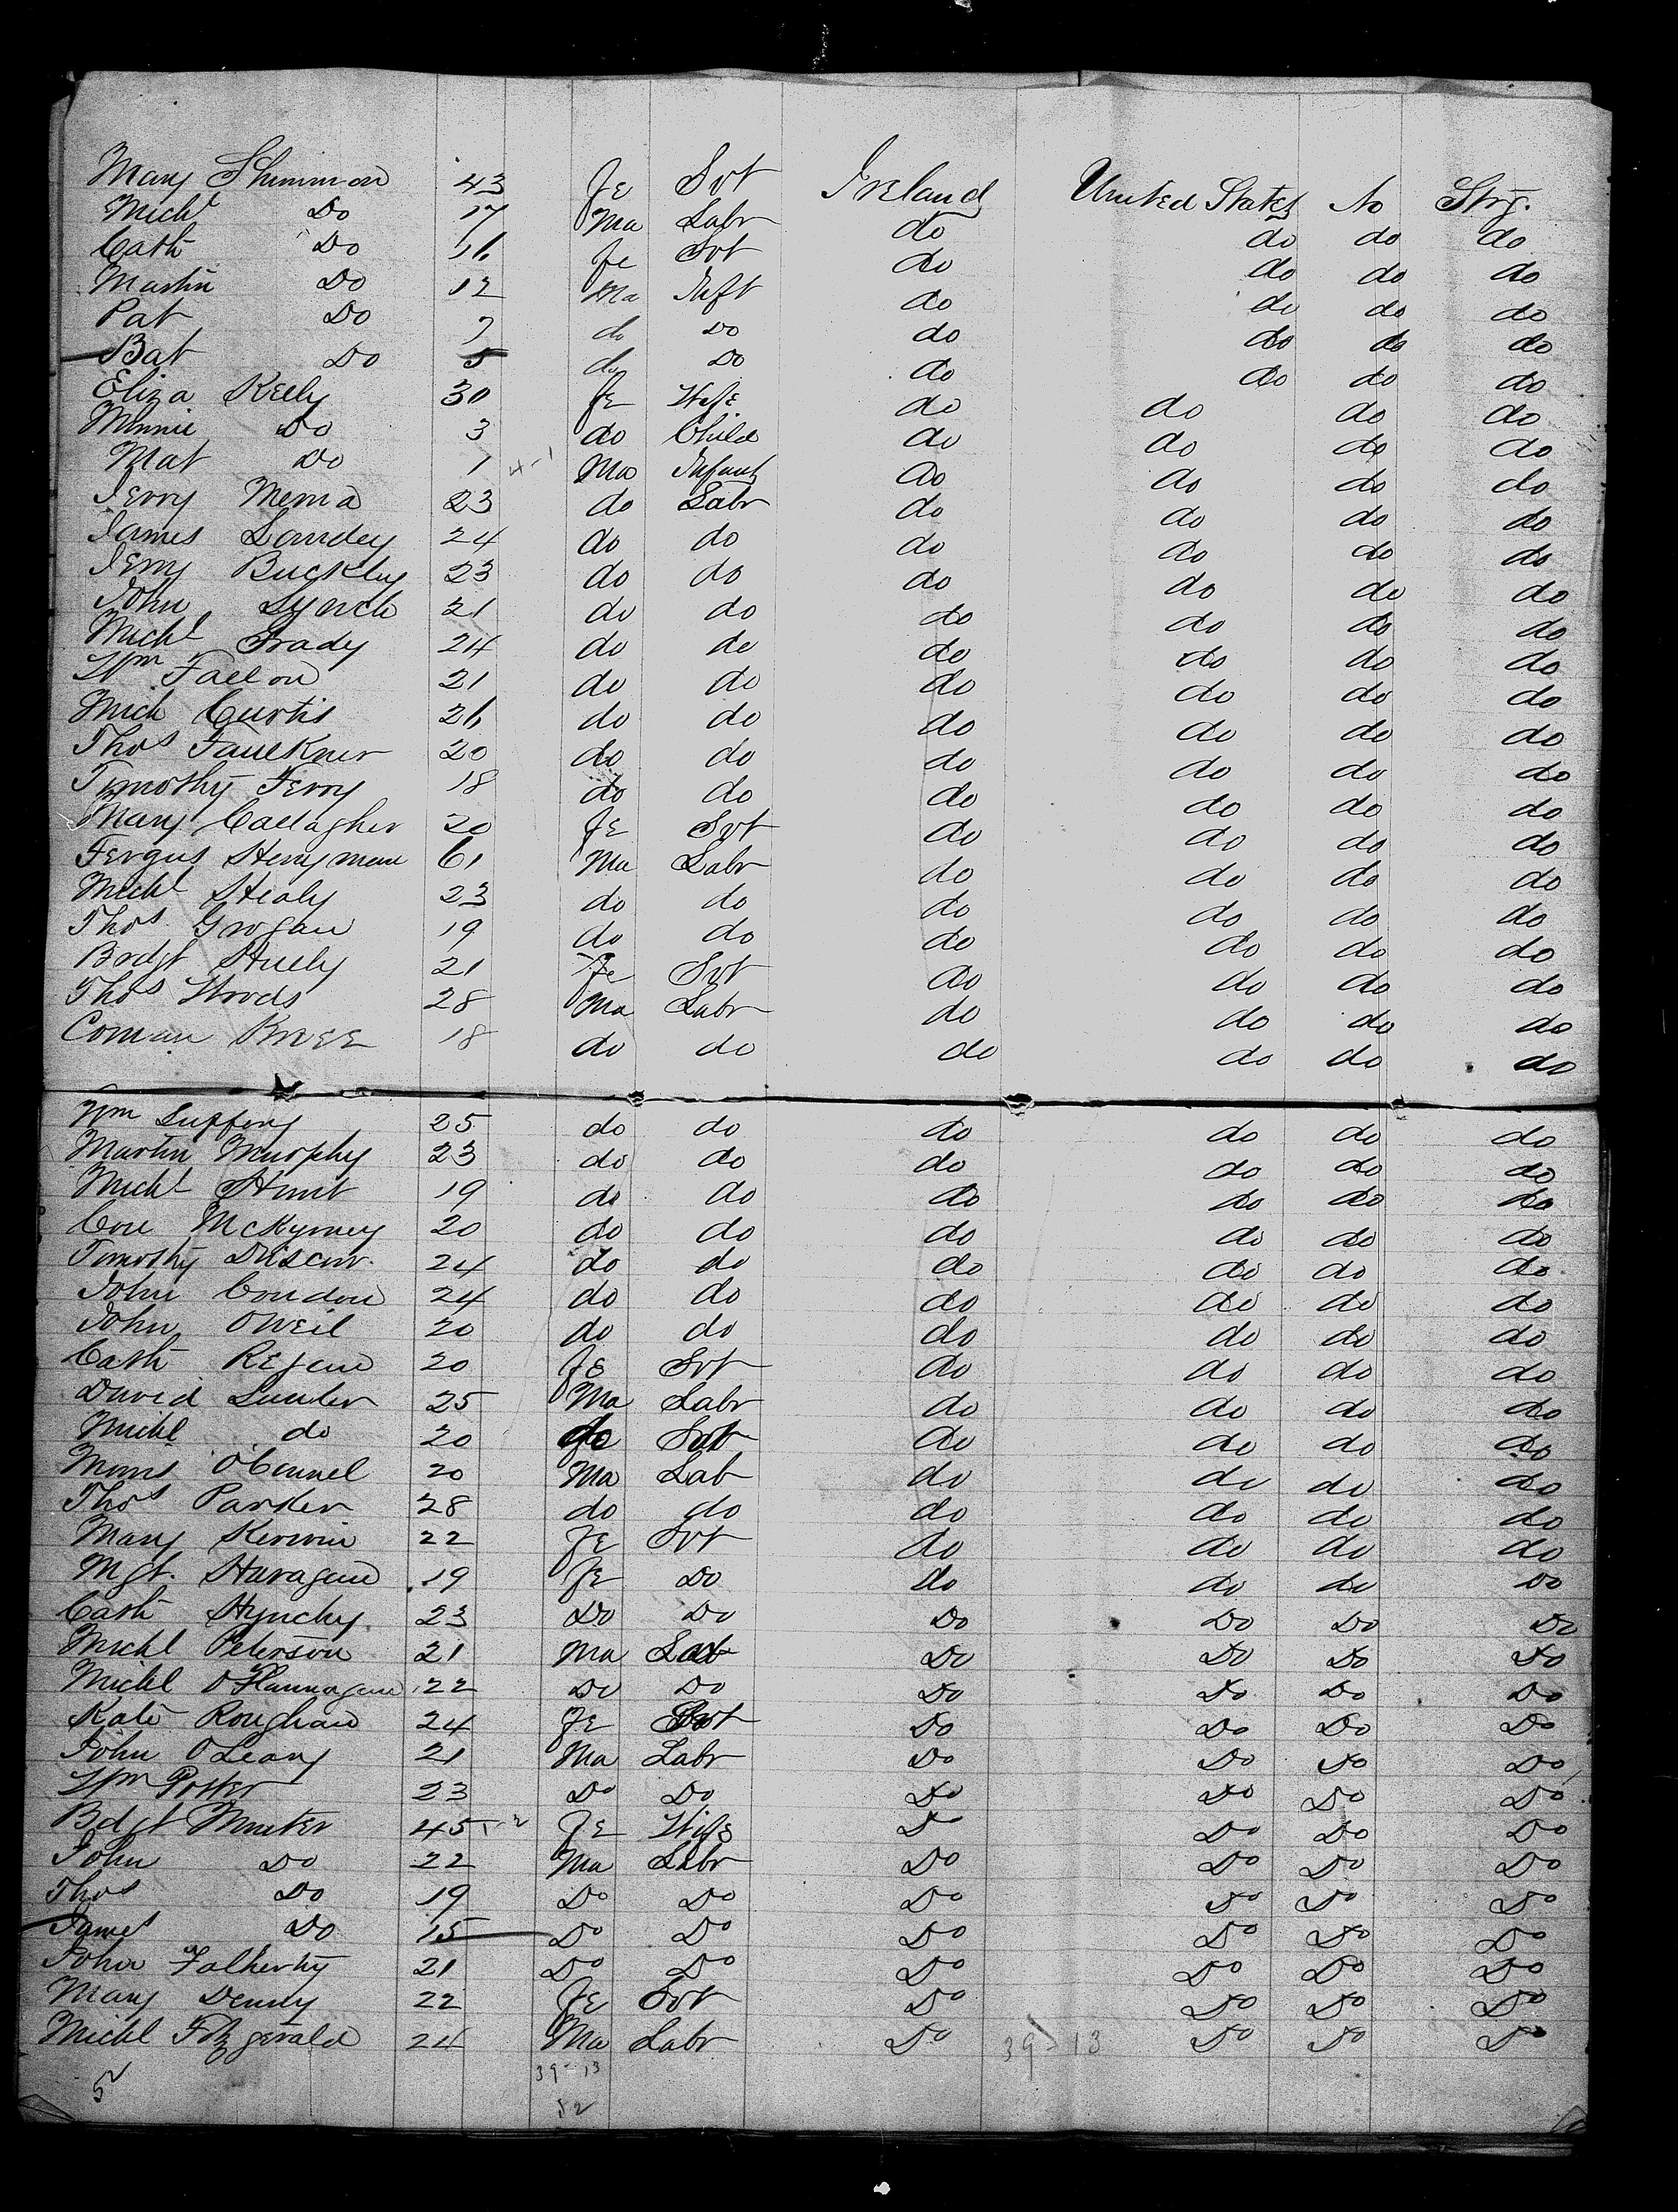 Mary Shimmon 43 Fe Svt Ireland United States No Strg.
Michl Do 17 Ma Labr do do do do
Cath Do 16 Fe Svt do do do do
Martin Do 12 Ma Inft do do do do
Pat Do 7 do Do do do do do
Bat Do 5 do Do do do do do
Eliza Kelly 30 Fe Wife do do do do
Minnie Do 3 do Child do do do do
Mat Do 1 4-1 Ma Infant do do do do
Jerry 23 do Labr do do do do
James Landey 24 do do do do do do
Jerry Buckley 23 do do do do do do
John Lynch 21 do do do do do do
Michl Grady 24 do do do do do do
Wm Fallon 21 do do do do do do
Mich Curtis 26 do do do do do do
Thos Faulkner 20 do do do do do do
Timothy Terry 18 do do do do do do
Mary Callagher 20 Fe Svt do do do do
Fergus 61 Ma Labr do do do do
Michl Healy 23 do do do do do do
Thos Grogan 19 do do do do do do
Brdgt 21 Fe Svt do do do do
Thos Woods 28 Ma Labr do do do do
Coman 18 do do do do do do
Wm 25 do do do do do do
Martin Murphy 23 do do do do do do
Michl Hunt 19 do do do do do do
Con 20 do do do do do do
Timothy 24 do do do do do do
John Condon 24 do do do do do do
John ONeil 20 do do do do do do
Cath Regan 20 Fe Svt do do do do
David 25 Ma Labr do do do do
Michl do 20 Fe Svt do do do do
Morris OConnel 20 Ma Lab do do do do
Thos Parker 28 do do do do do do
Mary Kerwin 22 Fe Svt do do do do
Mgt. 19 Fe Do do do do Do
Cath Hynchy 23 Do Do Do Do Do Do
Michl Peterson 21 Ma Lab Do Do Do Do
Michl OFlannagan 22 Do Do Do Do Do Do
Kate Roughan 24 Fe Svt Do Do Do Do
John OLeary 21 Ma Labr Do Do Do Do
Wm Potter 23 Do Do Do Do Do Do
Bdgt 45 Fe Wife Do Do Do Do
John Do 22 Ma Labr Do Do Do Do
Thos Do 19 Do Do Do Do Do Do
James Do 15 Do Do Do Do Do Do
John 21 Do Do Do Do Do Do
Mary Denny 22 Fe Svt Do Do Do Do
Michl Fitzgerald 24 Ma Labr Do 39 13 Do Do Do
39-13
52 52